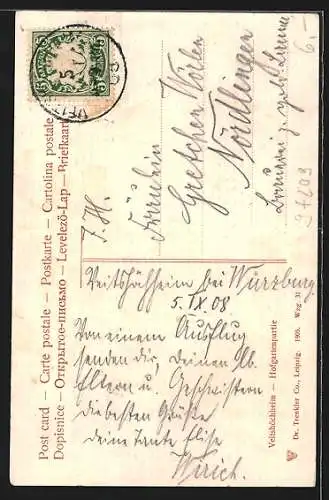 Post card — Carte postale — Postkarte — Cartolina postale
Dopisnice — Открытое-письмо — Levelező-Lap — Briefkaart
5
I. H.
Fräulein
Gretchen Wörlen
Nördlingen
6.-
Veitshöchheim bei Würzburg
5. IX 08
Von einem Ausflug
senden dir, deinen lb.
Eltern u. Geschwistern
die besten Grüße
deine Tante Elise
Veitshöchheim — Hofgartenpartie
Dr. Trenkler Co., Leipzig. 1905. Wzg 31